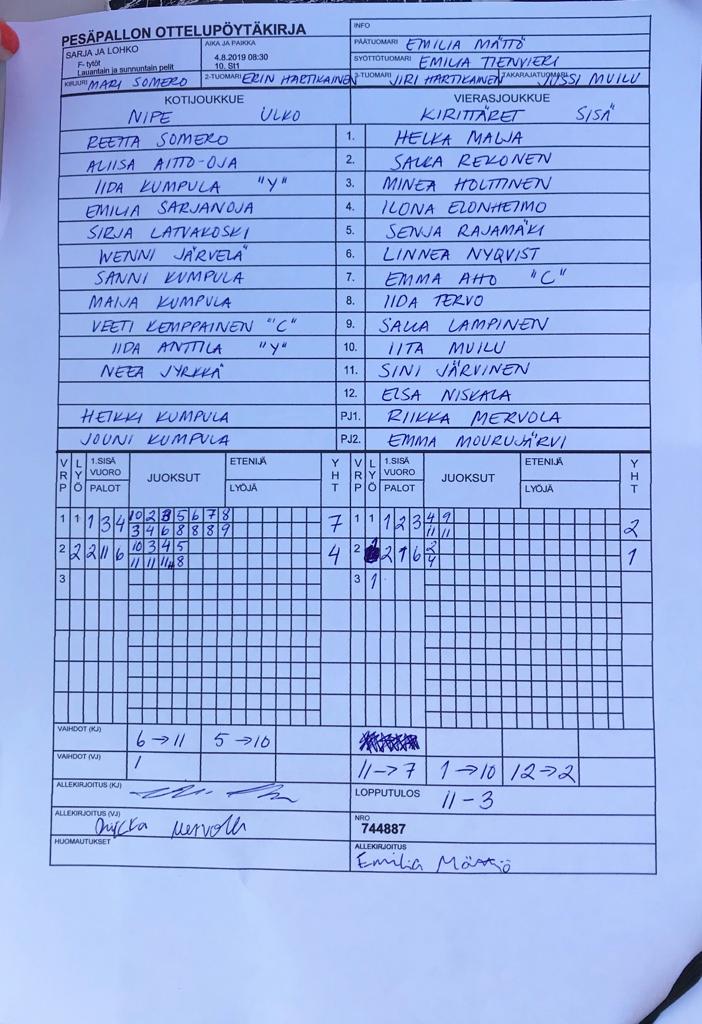 PESÄPALLON OTTELUPÖYTÄKIRJA
INFO
SARJA JA LOHKO
F- tytöt
Lauantain ja sunnuntain pelit
AIKA JA PAIKKA
4.8.2019 08:30
10. St1
PÄÄTUOMARI EMILIA MÄTTÖ
SYÖTTÖTUOMARI EMILIA TIENVIERI
KIRJURI MARI SOMERO 2-TUOMARI ERIN HARTIKAINEN 3-TUOMARI JIRI HARTIKAINEN TAKARAJATUOMARI JUSSI MUILU
KOTIJOUKKUE VIERASJOUKKUE
NIPE ULKO KIRITTÄRET SISÄ
REETTA SOMERO 1. HELKA MALJA
ALIISA AITTO-OJA 2. SALLA REKONEN
IIDA KUMPULA "Y" 3. MINEA HOLTTINEN
EMILIA SARJANOJA 4. ILONA ELONHEIMO
SIRJA LATVAKOSKI 5. SENJA RAJAMÄKI
WENNI JÄRVELÄ 6. LINNEA NYQVIST
SANNI KUMPULA 7. EMMA AHO "C"
MAIJA KUMPULA 8. IIDA TERVO
VEETI KEMPPAINEN "C" 9. SALLA LAMPINEN
IIDA ANTTILA "Y" 10. IITA MUILU
NEEA JYRKKÄ 11. SINI JÄRVINEN
12. ELSA NISKALA
HEIKKI KUMPULA PJ1. RIIKKA MERVOLA
JOUNI KUMPULA PJ2. EMMA MOURUJÄRVI
VRP LYÖ 1.SISÄ VUORO PALOT JUOKSUT ETENIJÄ LYÖJÄ YHT VRP LYÖ 1.SISÄ VUORO PALOT JUOKSUT ETENIJÄ LYÖJÄ YHT
10 2 3 5 6 7 8 4 9
1 1 1 3 4 7 1 1 1 2 3 2
3 4 6 8 8 8 9 11 11
10 3 4 5 2
2 2 2 11 6 4 2 2 1 6 1
11 11 11 8 4
3 3 1
VAIHDOT (KJ) 6→11 5→10
VAIHDOT (VJ) 11→7 1→10 12→2
ALLEKIRJOITUS (KJ) LOPPUTULOS 11-3
ALLEKIRJOITUS (VJ) Mervola NRO
744887
HUOMAUTUKSET ALLEKIRJOITUS
Emilia Mättö